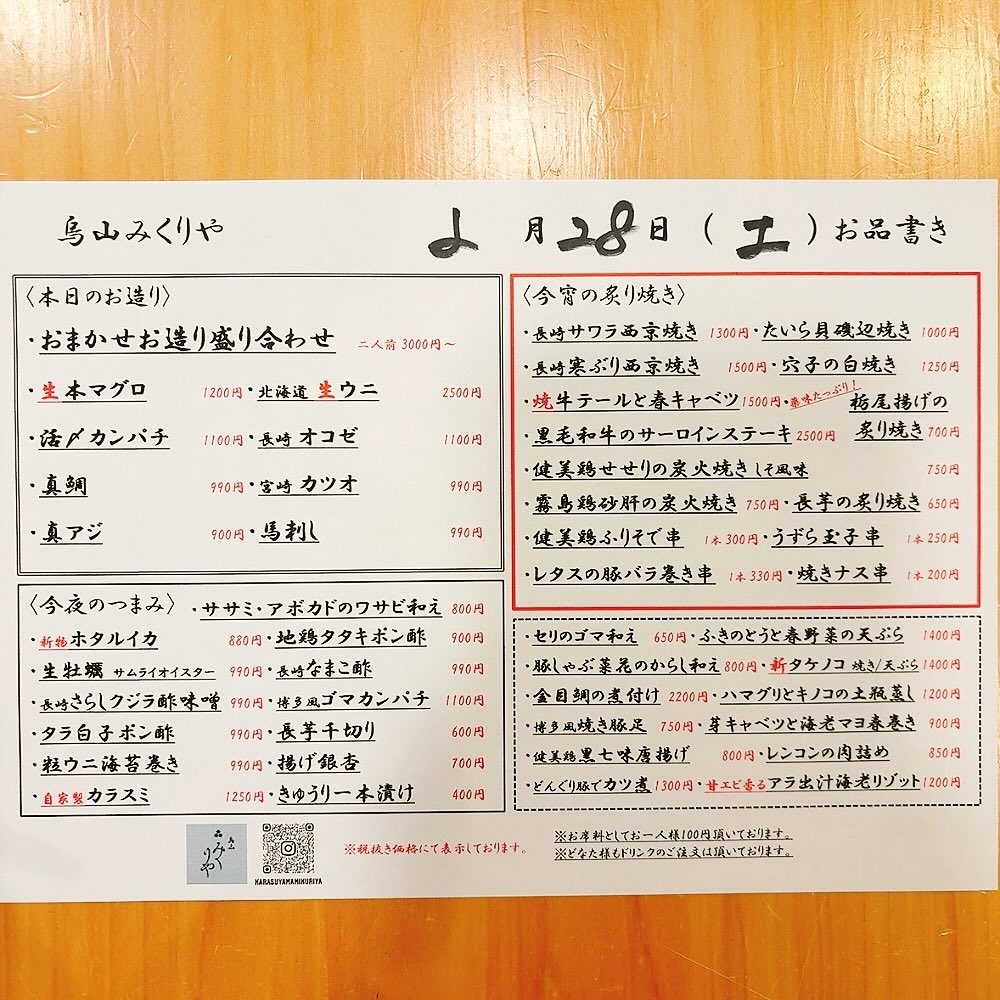 烏山みくりや 2月28日(土)お品書き
〈本日のお造り〉
おまかせお造り盛り合わせ 二人前 3000円〜
・生本マグロ 1200円・北海道 生ウニ 2500円
・活〆カンパチ 1100円・長崎 オコゼ 1100円
・真鯛 990円・宮崎 カツオ 990円
・真アジ 900円・馬刺し 990円
〈今夜のつまみ〉・ササミ・アボカドのワサビ和え 800円
・新物ホタルイカ 880円・地鶏タタキポン酢 900円
・生牡蠣 サムライオイスター 990円・長崎なまこ酢 990円
・長崎さらしクジラ酢味噌 990円・博多風ゴマカンパチ 1100円
・タラ白子ポン酢 990円・長芋千切り 600円
・粒ウニ海苔巻き 990円・揚げ銀杏 700円
・自家製カラスミ 1250円・きゅうり一本漬け 400円
〈今宵の炙り焼き〉
・長崎サワラ西京焼き 1300円・たいら貝磯辺焼き 1000円
・長崎寒ぶり西京焼き 1500円・穴子の白焼き 1250円
・焼牛テールと春キャベツ 1500円・薬味たっぷり!栃尾揚げの
・黒毛和牛のサーロインステーキ 2500円 炙り焼き 700円
・健美鶏せせりの炭火焼き しそ風味 750円
・霧島鶏砂肝の炭火焼き 750円・長芋の炙り焼き 650円
・健美鶏ふりそで串 1本 300円・うずら玉子串 1本 250円
・レタスの豚バラ巻き串 1本 330円・焼きナス串 1本 200円
・セリのゴマ和え 650円・ふきのとうと春野菜の天ぷら 1400円
・豚しゃぶ菜花のからし和え 800円・新タケノコ 焼き/天ぷら 1400円
・金目鯛の煮付け 2200円・ハマグリとキノコの土瓶蒸し 1200円
・博多風焼き豚足 750円・芽キャベツと海老マヨ春巻き 900円
・健美鶏黒七味唐揚げ 800円・レンコンの肉詰め 850円
・どんぐり豚でカツ煮 1300円・甘エビ香るアラ出汁海老リゾット 1200円
烏山
みくりや
KARASUYAMAMIKURIYA
※税抜き価格にて表示しております。
※お席料としてお一人様100円頂いております。
※どなた様もドリンクのご注文は頂いております。